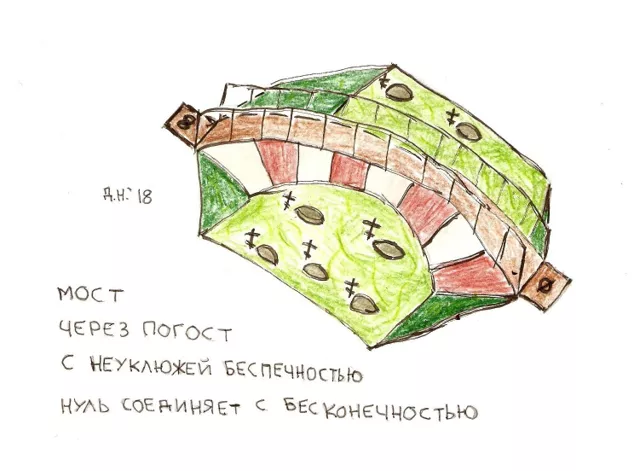 8
Д.Н.'18
0
МОСТ
ЧЕРЕЗ ПОГОСТ
С НЕУКЛЮЖЕЙ БЕСПЕЧНОСТЬЮ
НУЛЬ СОЕДИНЯЕТ С БЕСКОНЕЧНОСТЬЮ